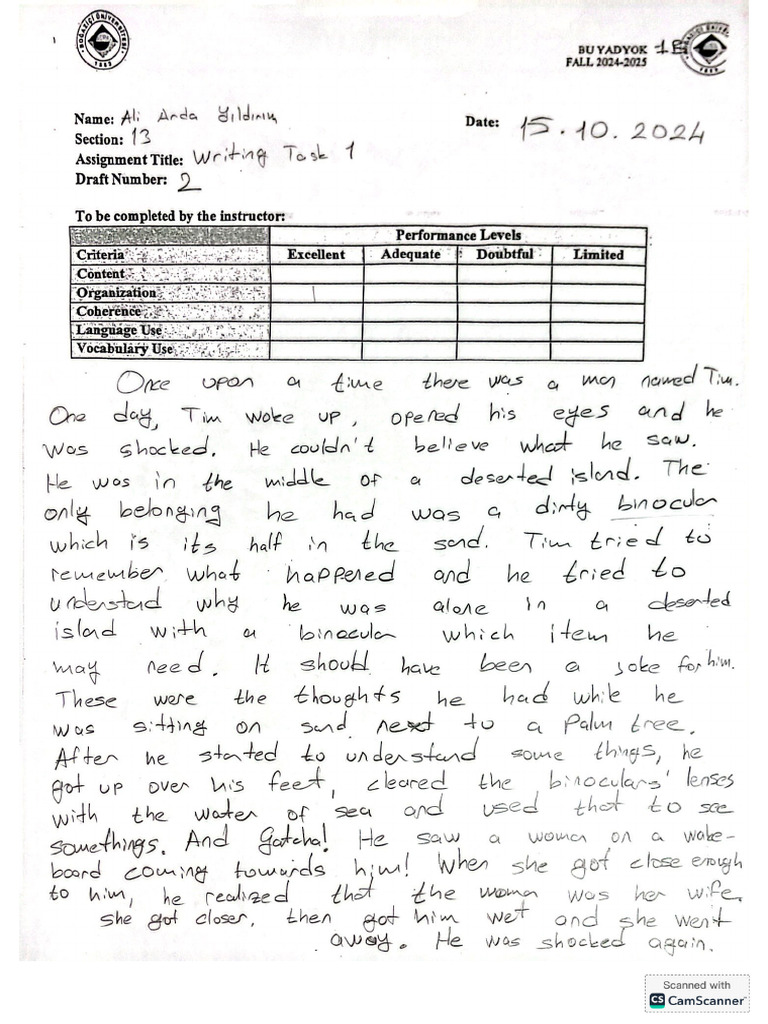 BOĞAZİÇİ ÜNİVERSİTESİ
1863
BU YADYOK 1B
FALL 2024-2025
Name: Ali Arda Yıldırım
Date: 15.10.2024
Section: 13
Assignment Title: Writing Task 1
Draft Number: 2
To be completed by the instructor:
Performance Levels
Criteria Excellent Adequate Doubtful Limited
Content
Organization
Coherence
Language Use
Vocabulary Use
Once upon a time there was a man named Tim.
One day, Tim woke up, opened his eyes and he
was shocked. He couldn't believe what he saw.
He was in the middle of a deserted island. The
only belonging he had was a dirty binocular
which is its half in the sand. Tim tried to
remember what happened and he tried to
understad why he was alone in a deserted
islad with a binocular which item he
may need. It should have been a joke for him.
These were the thoughts he had while he
was sitting on sand next to a palm tree.
After he started to understand some things, he
got up over his feet, cleared the binoculars' lenses
with the water of sea and used that to see
somethings. And Gotcha! He saw a woman on a wake-
board coming towards him! When she got close enough
to him, he realized that the woman was her wife.
she got closer, then got him wet and she went
away. He was shocked again.
Scanned with
CS CamScanner